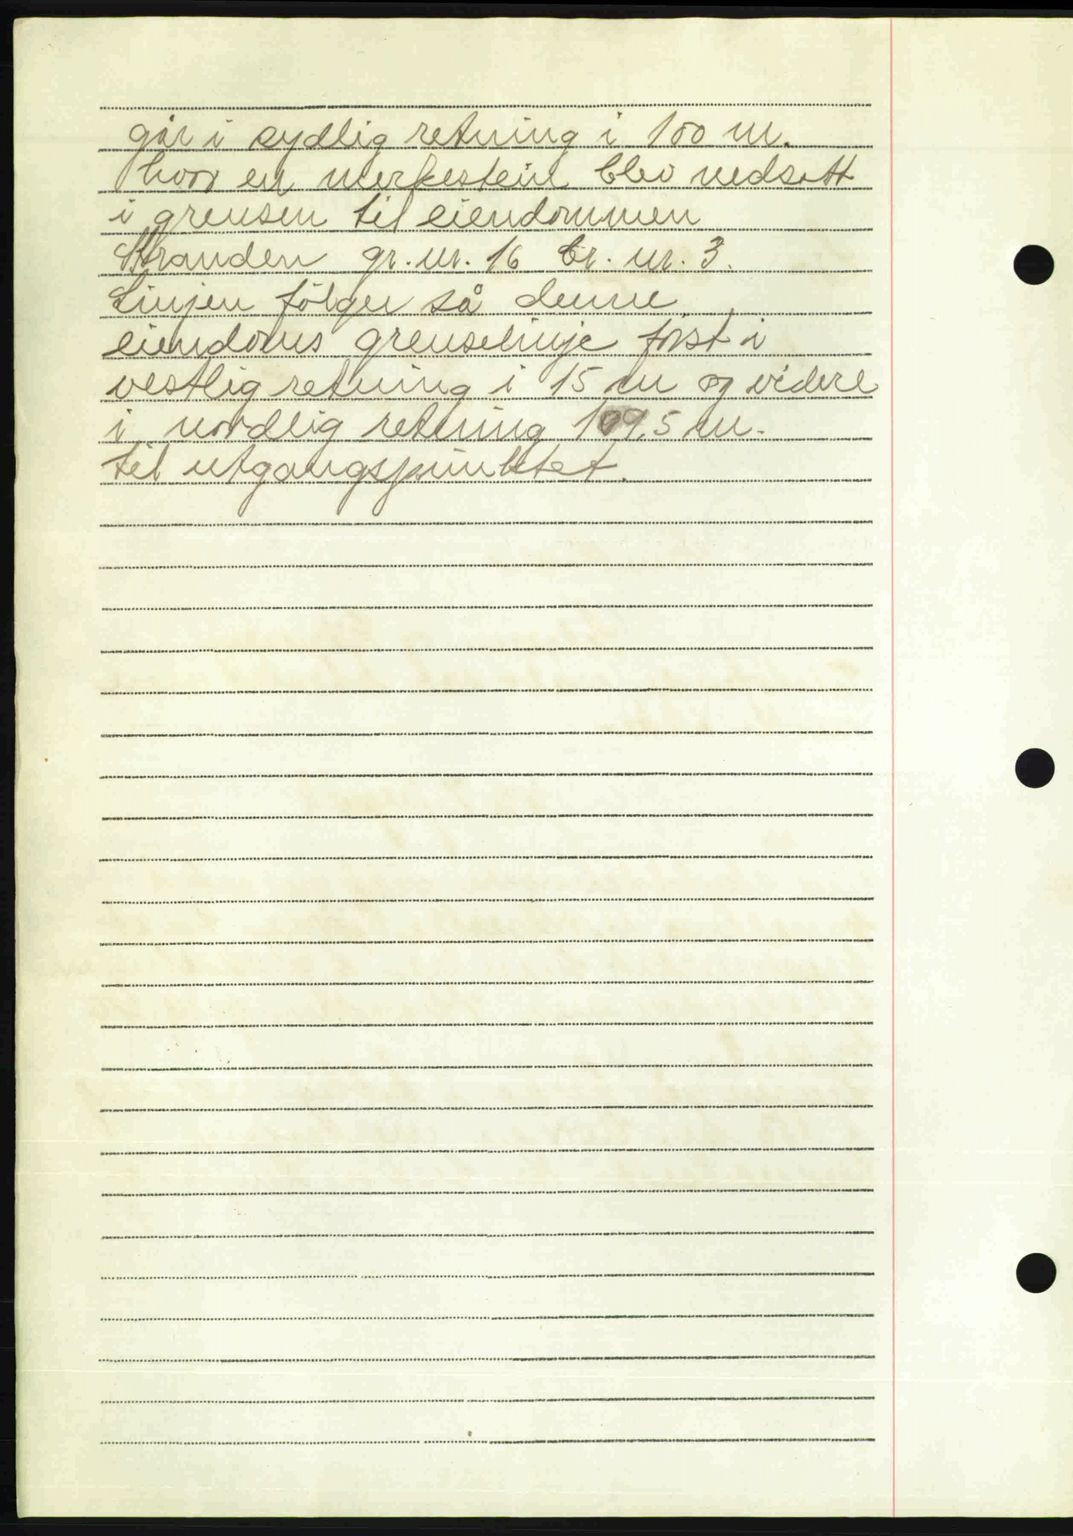 går i sydlig retning i 100 m.
hvor en merkestein blev nedsatt
i grensen til eiendommen
Stranden gr. nr. 16 br. nr. 3.
Linjen følger så denne
eiendoms grenselinje først i
vestlig retning i 15 m og videre
i nordlig retning 109,5 m.
til utgangspunktet.